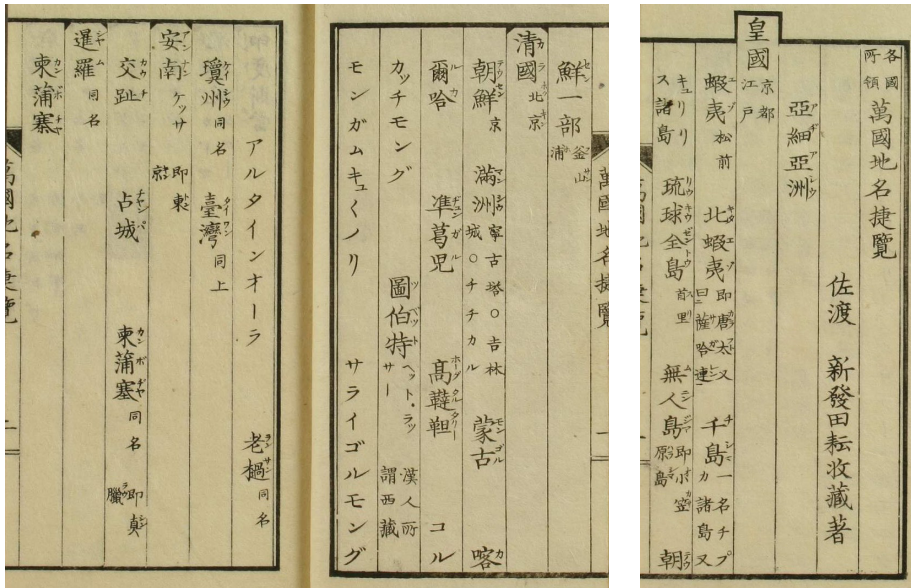 各國所領 萬國地名捷覽
佐渡 新發田耘收藏著
亞細亞洲
皇國
京都 江戸
蝦夷 松前 北蝦夷 即唐太又曰薩哈連 千島 一名チプカ諸島又
キュリリス諸島 琉球全島 首里 無人島 即小笠原島 朝
萬國地名捷覽
鮮一部 釜山浦
清國 北京
朝鮮 京 滿洲 寧古塔○吉林城○チチカル 蒙古 喀
爾哈 準葛兒 高韃靼 コル
カッチモング 圖伯特 ヘット・ラッサー 漢人所謂西藏
モンガムキュくノリ サライゴルモング
アルタインオーラ 老撾 同名
瓊州 同名 臺灣 同上
安南 ケッサ 即東京
交趾 占城 柬蒲塞 同名 即真臘
暹羅 同名
柬蒲寨